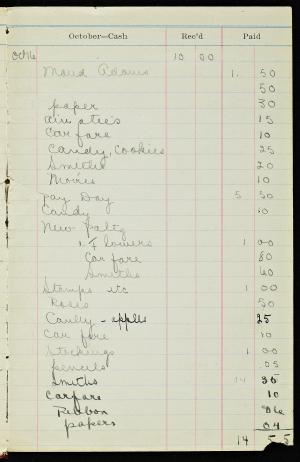 October—Cash Rec'd Paid
Oct 16 10 00
Maud Adams 1. 50
50
paper 30
15
Car fare 10
Candy, Cookies 25
Smiths 20
Movies 10
Pay Day 5 50
Candy 10
New Paltz
Flowers 1 00
Car fare 80
Smiths 40
Stamps etc 1 00
Roses 50
Candy - apples 25
Car fare 10
Stockings 1 00
pencils .05
Smiths 14 35
Carfare 10
Ribbon
papers 04
14 55